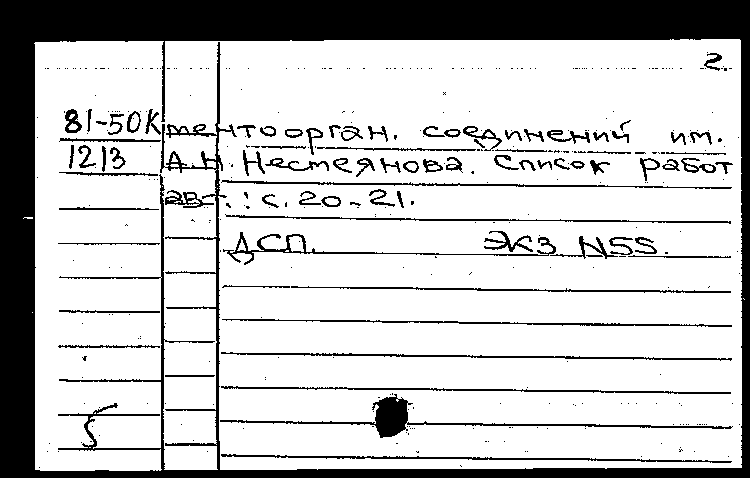 2.
81-50К ментоорган. соединений им.
1213 А.Н. Несмеянова. Список работ
авт.: с. 20-21.
ДСП. Экз N55.
5